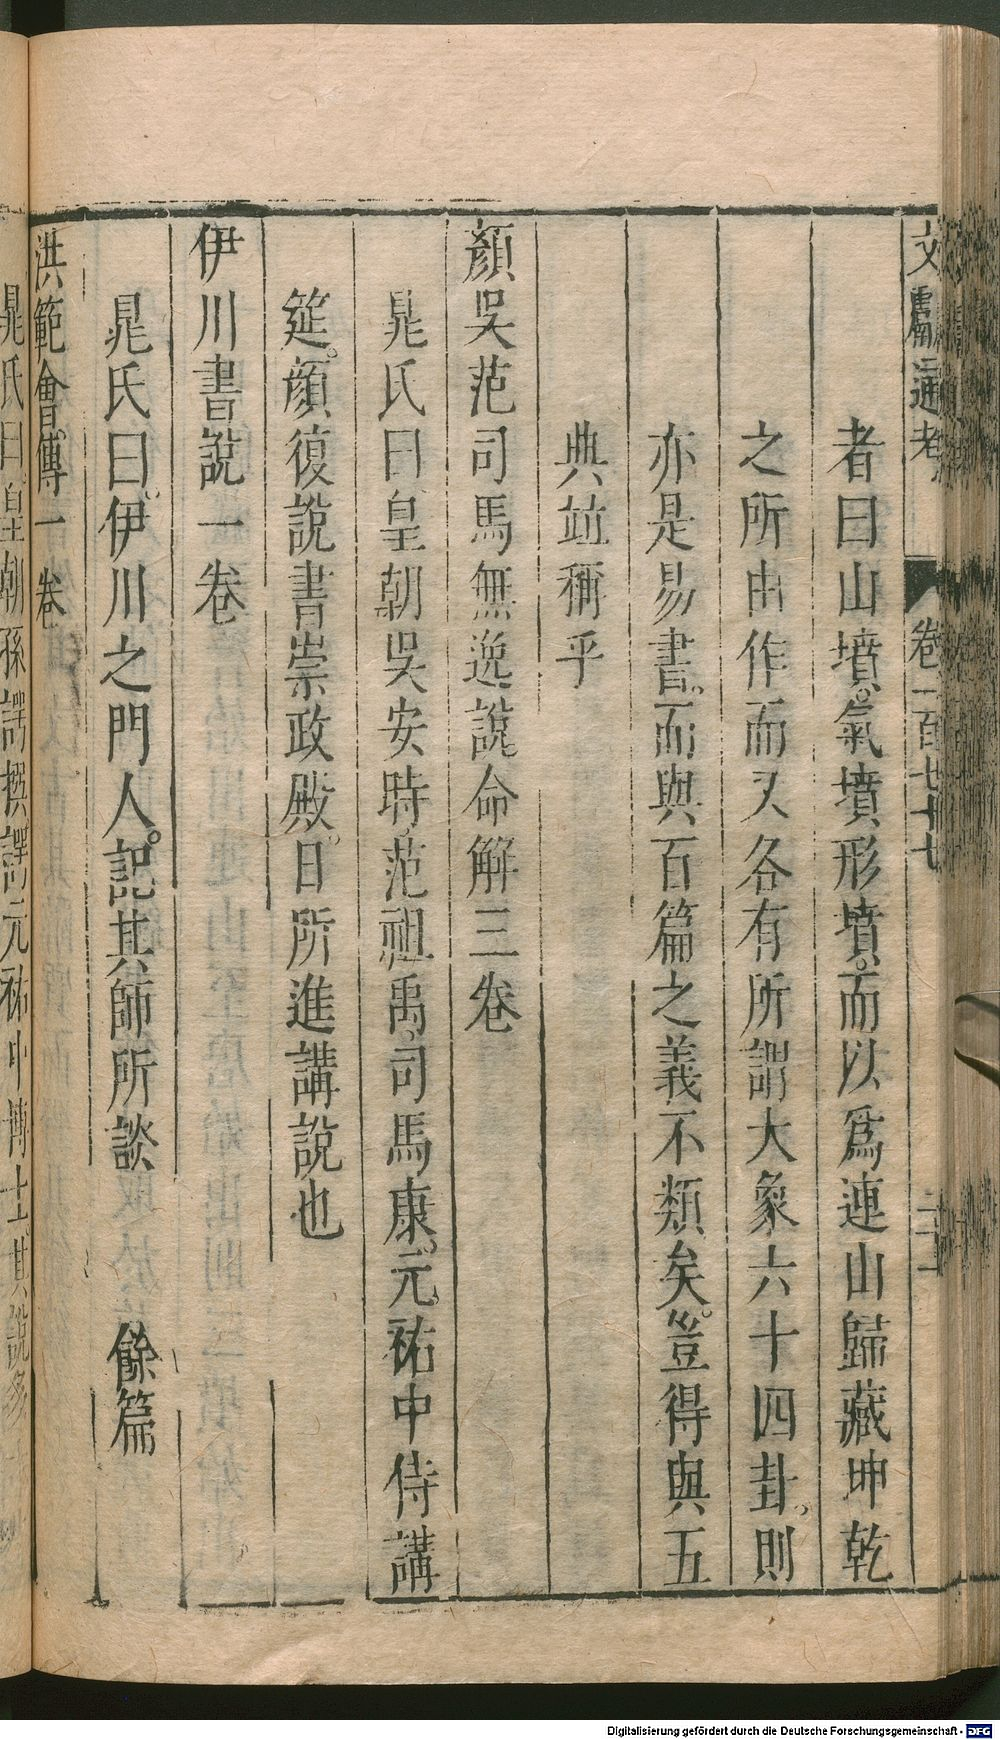 文獻通考 卷一百七十七
者曰山墳。氣墳形墳。而以爲連山歸藏坤乾
之所由作而又各有所謂大象六十四卦。則
亦是易書。而與百篇之義不類矣。豈得與五
典竝稱乎
顏吳范司馬無逸說命解三卷
晁氏曰皇朝吳安時范祖禹司馬康。元祐中侍講
筵。顏復說書崇政殿。日所進講說也
伊川書說一卷
晁氏曰。伊川之門人。記其師所談 餘篇
洪範會傳一卷
晁氏曰皇朝孫諤撰諤元祐中博士其說多
Digitalisierung gefördert durch die Deutsche Forschungsgemeinschaft - DFG